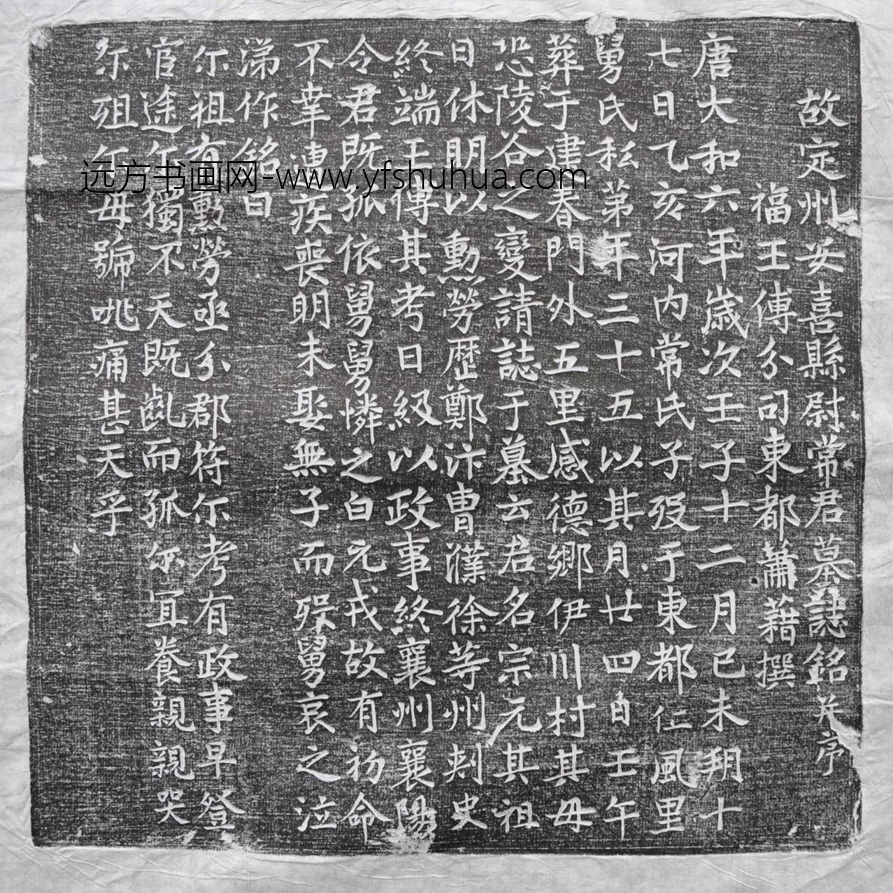 故定州安喜縣尉常君墓誌銘并序
福王傅分司東都蕭籍撰
唐大和六年歲次壬子十二月己未朔十
七日乙亥河内常氏子歿于東都仁風里
舅氏私第年三十五以其月廿四日壬午
葬于建春門外五里感德鄉伊川村其母
恐陵谷之變請誌于墓云君名宗元其祖
日休明以勳勞歷鄭汴曹濮徐等州刺史
終端王傅其考日級以政事終襄州襄陽
令君既孤依舅舅憐之白元戎故有初命
不幸遘疾喪明未娶無子而歿舅哀之泣
涕作銘曰
尔祖有勳勞亟分郡符尔考有政事早登
官途尔獨不天既齓而孤尔宜養親親哭
尔殂尔母號咷痛甚天乎
远方书画网-www.yfshuhua.com